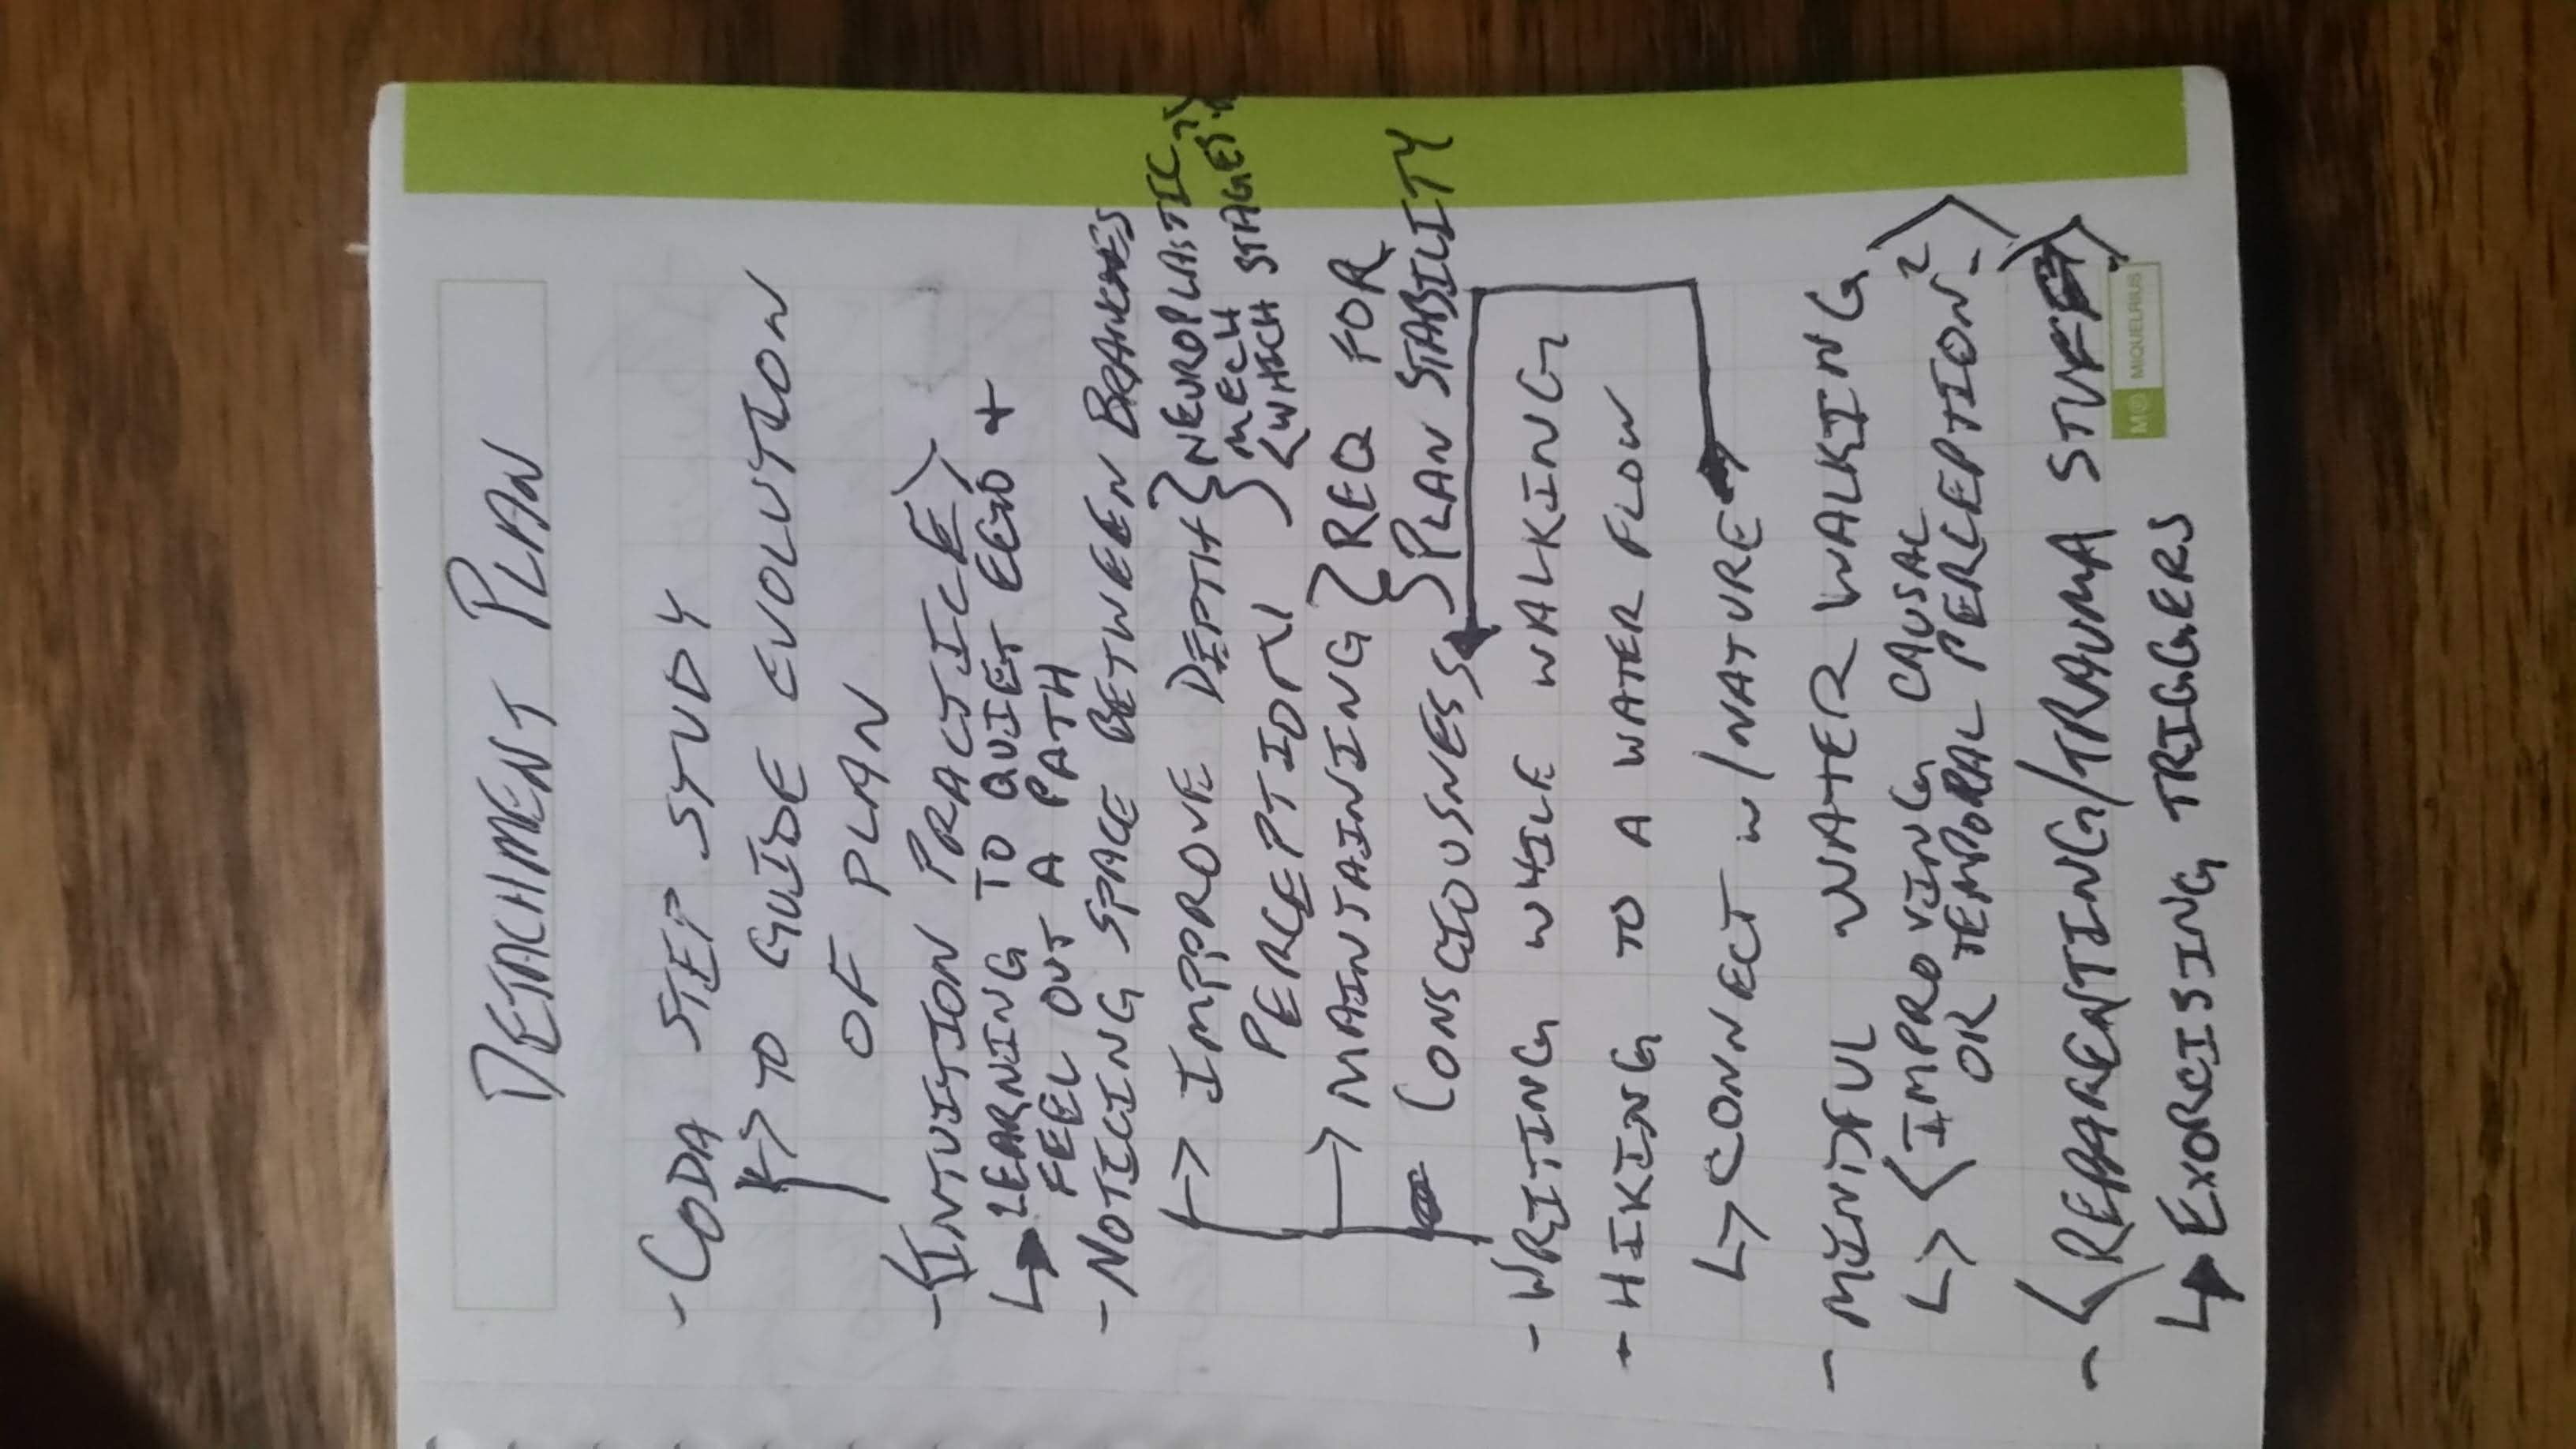 DETACHMENT PLAN
- CODA STEP STUDY
↳> TO GUIDE EVOLUTION
OF PLAN
- <INTUITION PRACTICE>
↳ LEARNING TO QUIET EGO +
FEEL OUT A PATH
- NOTICING SPACE BETWEEN BRANCHES
-> IMPPROVE DEPTH } NEUROPLASTIC
PERCEPTION } MECH
<WHICH STAGE??>
-> MAINTAINING } REQ FOR
CONSCIOUSNESS } PLAN STABILITY
- WRITING WHILE WALKING
- HIKING TO A WATER FLOW
↳ CONNECT w/NATURE
- MINDFUL WATER WALKING
↳ <IMPROVING CAUSAL
OR TEMPORAL PERCEPTION?>
- <REPARENTING/TRAUMA STUFF>
M MIQUELRIUS
↳ EXORCISING TRIGGERS